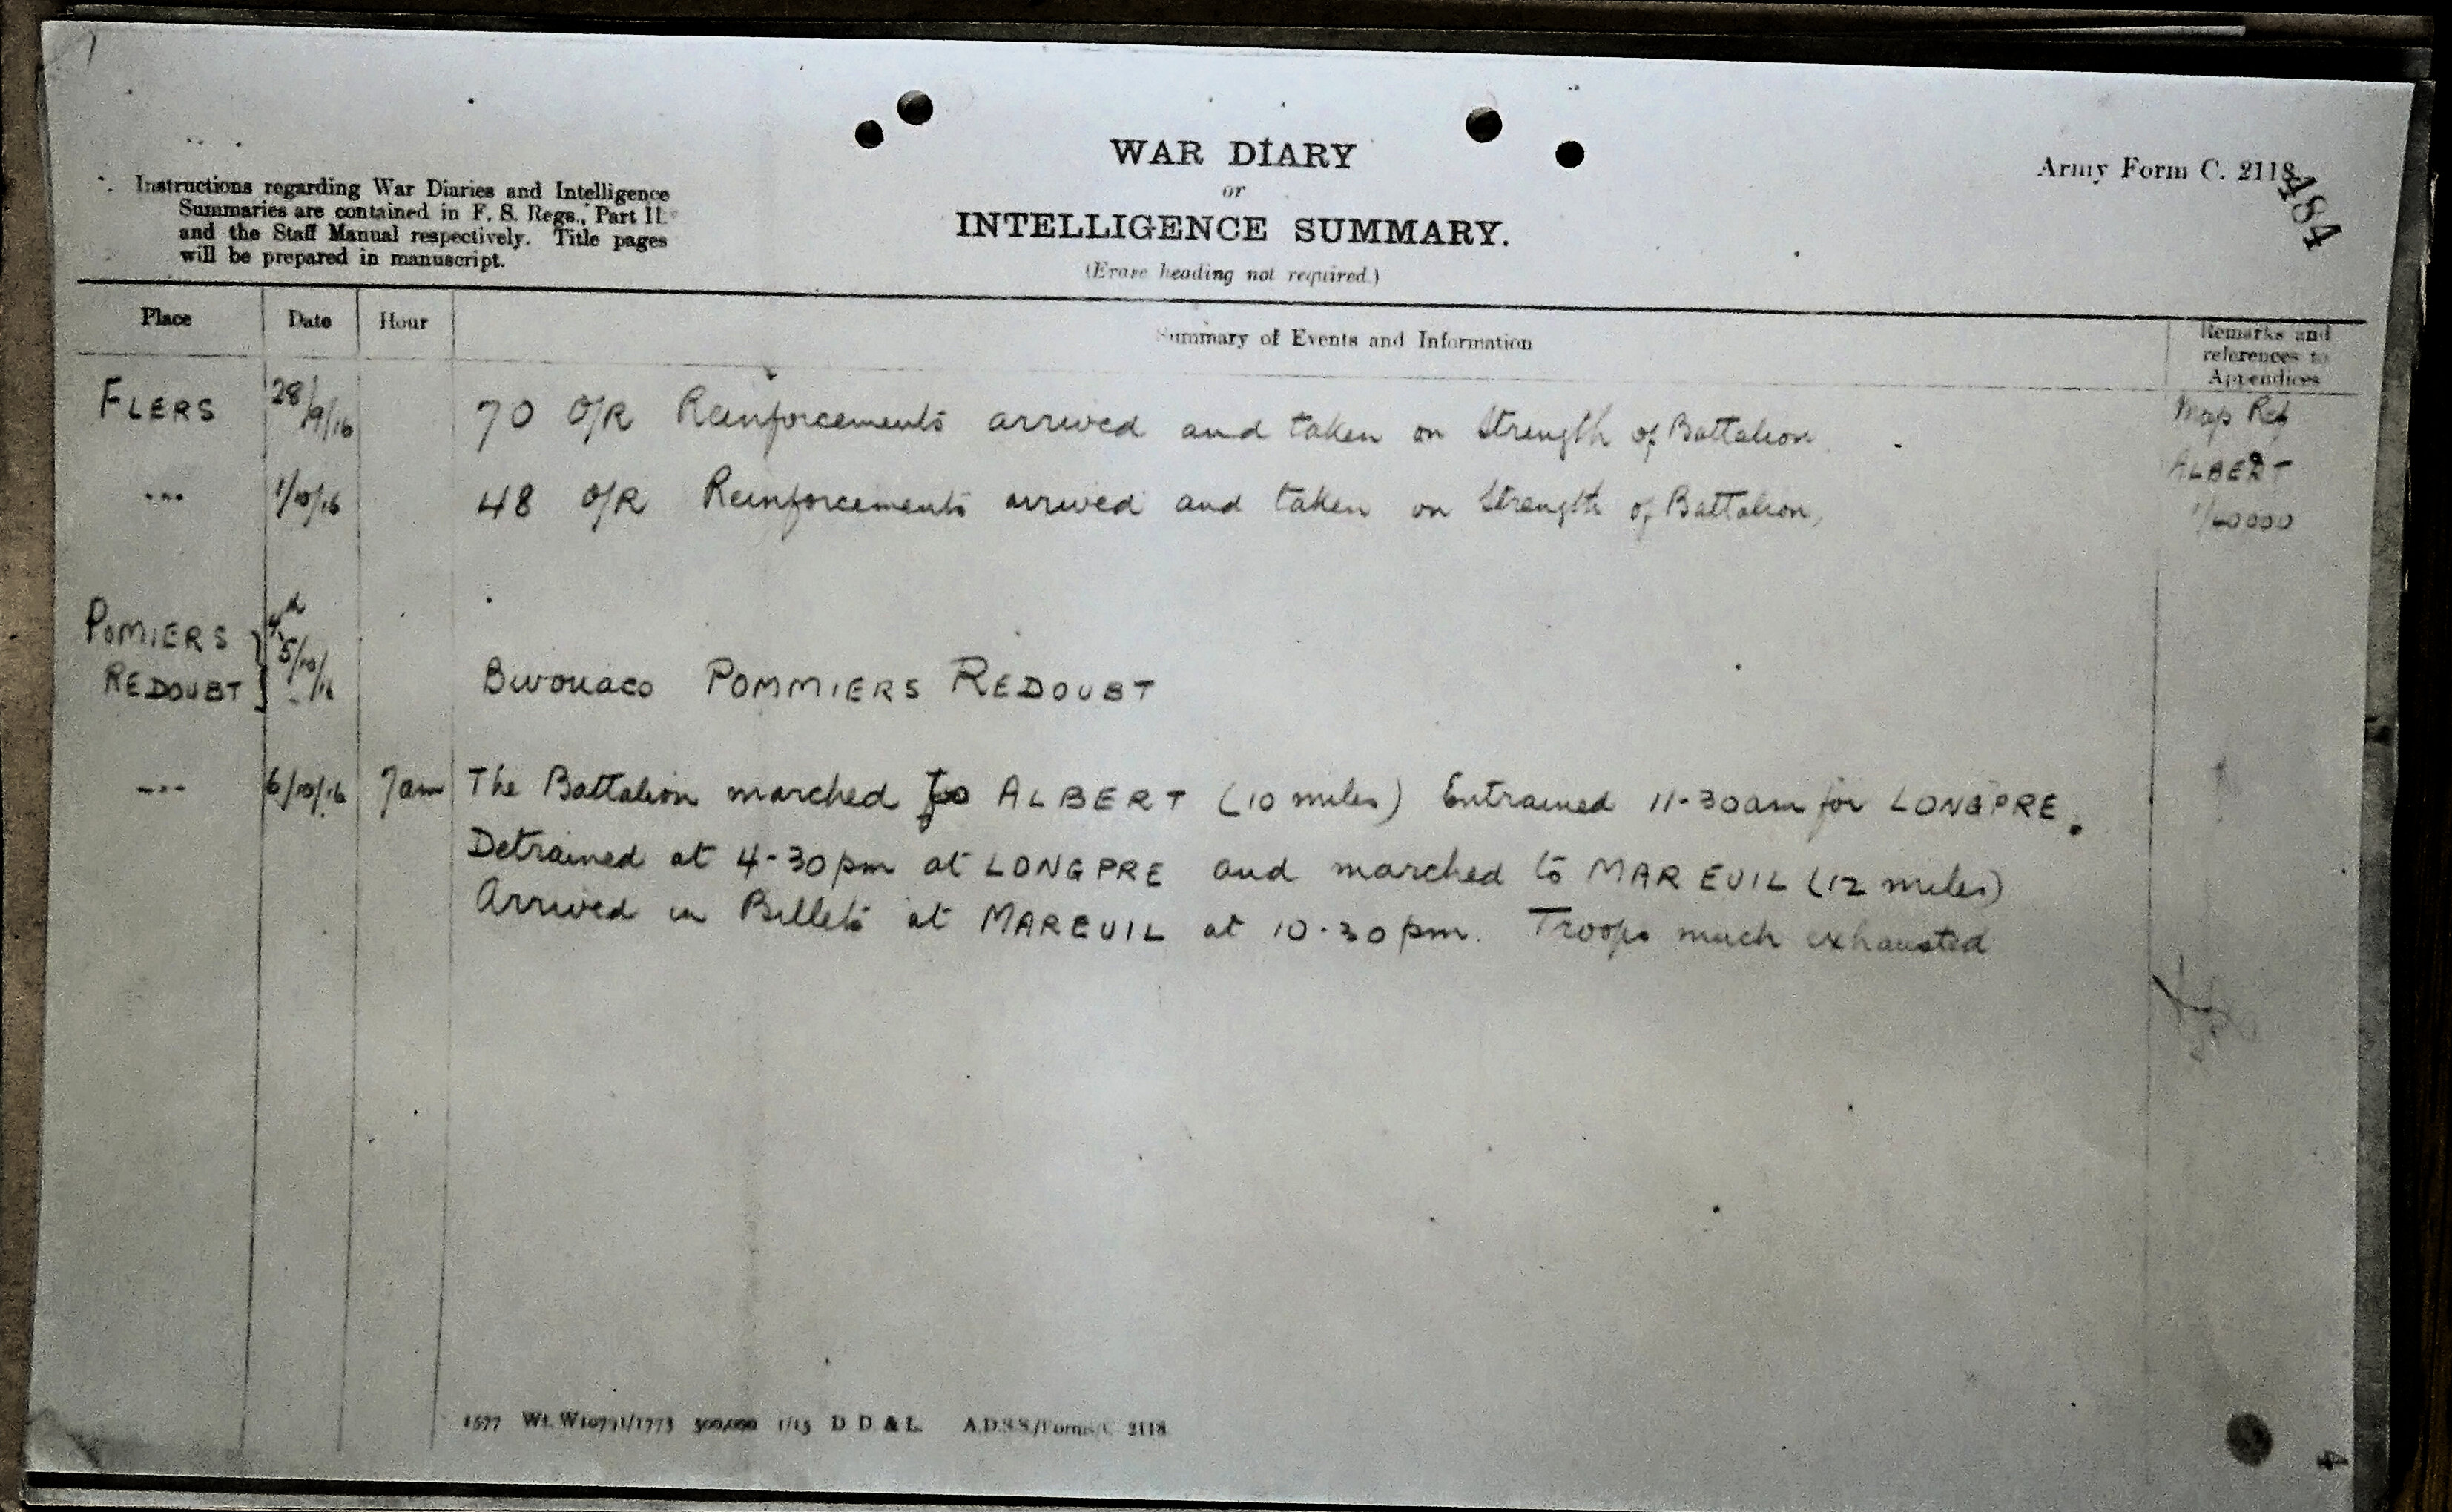 WAR DIARY
or
INTELLIGENCE SUMMARY.
(Erase heading not required.)
Army Form C. 2118.
484
Instructions regarding War Diaries and Intelligence
Summaries are contained in F. S. Regs., Part II.
and the Staff Manual respectively. Title pages
will be prepared in manuscript.
Place Date Hour Summary of Events and Information
Remarks and
references to
Appendices
FLERS 28/9/16 70 O/R Reinforcements arrived and taken on Strength of Battalion.
Map Ref
ALBERT
1/40000
" 1/10/16 48 O/R Reinforcements arrived and taken on Strength of Battalion,
POMIERS
REDOUBT } 5/10/16 Bivouacs POMMIERS REDOUBT
" 6/10/16 7am The Battalion marched to ALBERT (10 miles) Entrained 11-30am for LONGPRE.
Detrained at 4-30pm at LONGPRE and marched to MAREUIL (12 miles)
Arrived in Billets at MAREUIL at 10.30pm. Troops much exhausted
1577 Wt. W10791/1773 500,000 1/15 D. D. & L. A.D.S.S./Forms/C. 2118
4